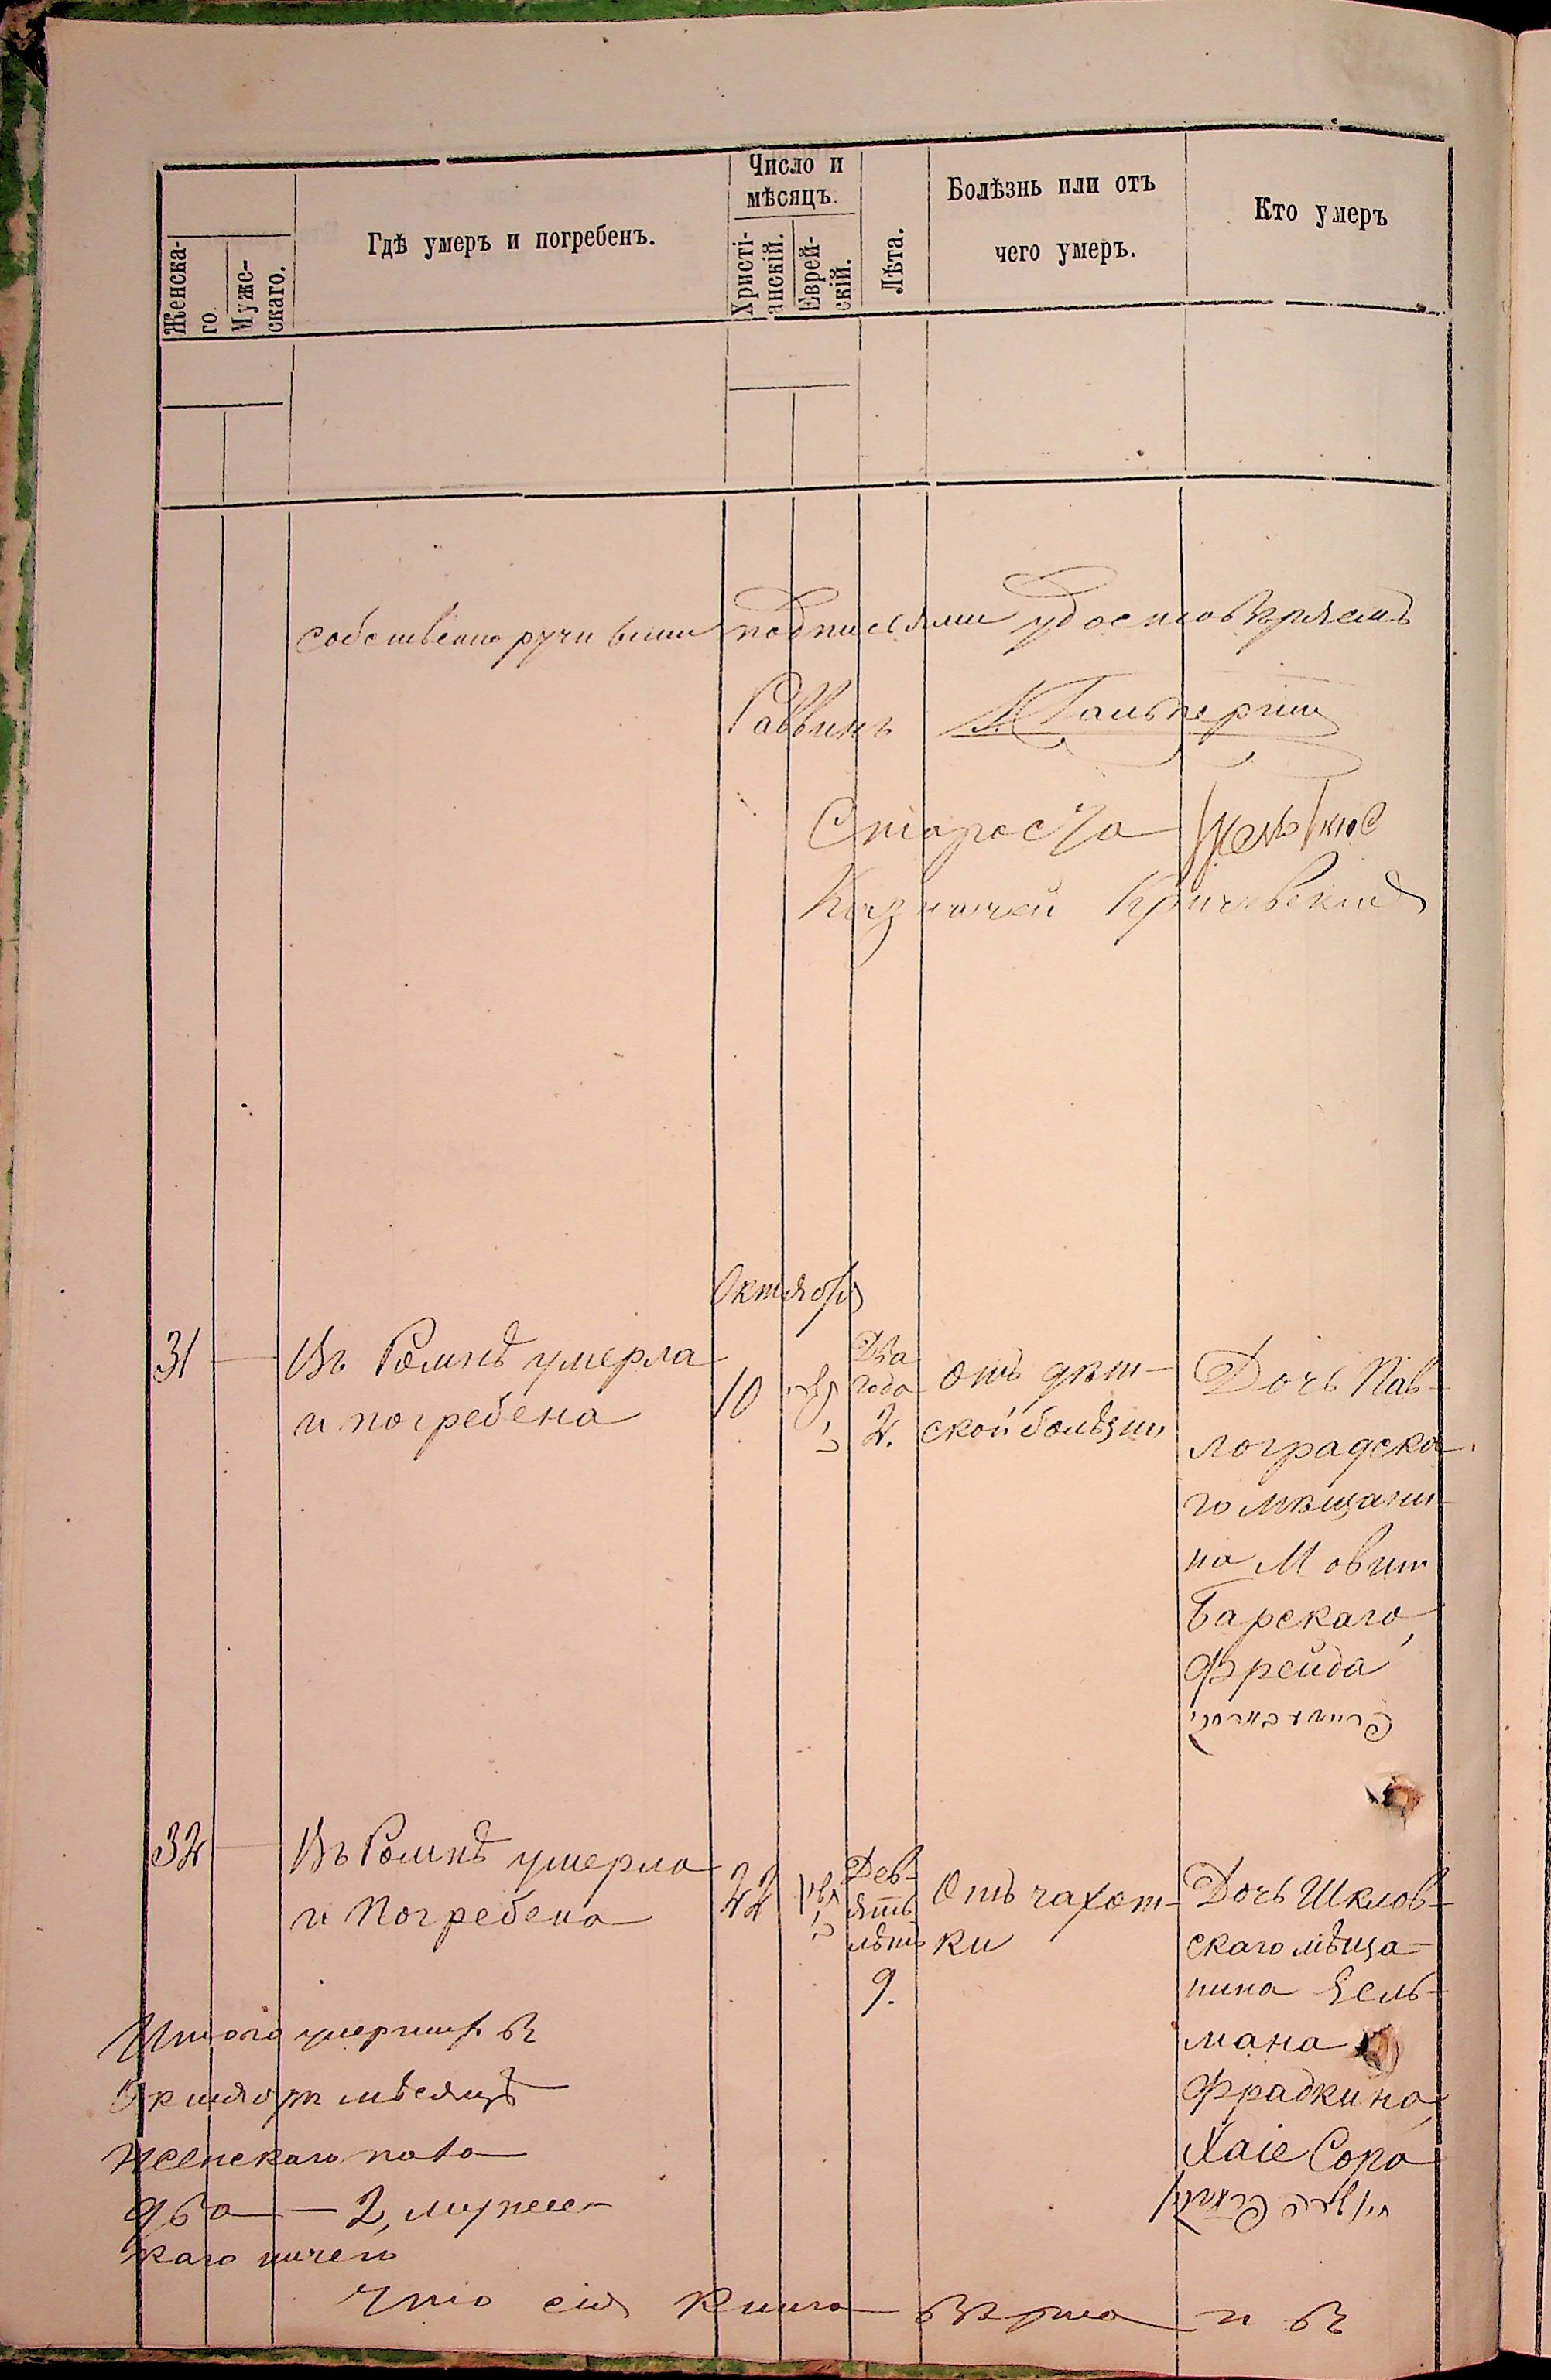 Женска-
го
Муже-
скаго.
Гдѣ умеръ и погребенъ.
Число и
мѣсяцъ.
Христі-
анскій.
Еврей-
скій.
Лѣта.
Болѣзнь или отъ
чего умеръ.
Кто умеръ
собственноручными подписями удостовѣряемъ
Раввинъ Гальперин
Староста
Казначей Кричевскій
Октября
31 — Въ Ромнѣ умерла
и погребена
10
Два
года
2.
отъ дѣт-
ской болѣзни
Дочь Пав-
лоградска-
го мѣщани-
на Мовши
Барскаго,
Фрейда
32 — Въ Ромнѣ умерла
и погребена
22
Дев-
ять
лѣтъ
9.
Отъ чахот-
ки
Дочь Шклов-
скаго мѣща-
нина Зель-
мана
Фрадкина,
Хаіе Сора
Итого умершихъ въ
Октябрѣ мѣсяцѣ
женскаго пола
два — 2, мужес-
каго ничего
Что сія книга вѣрна и въ